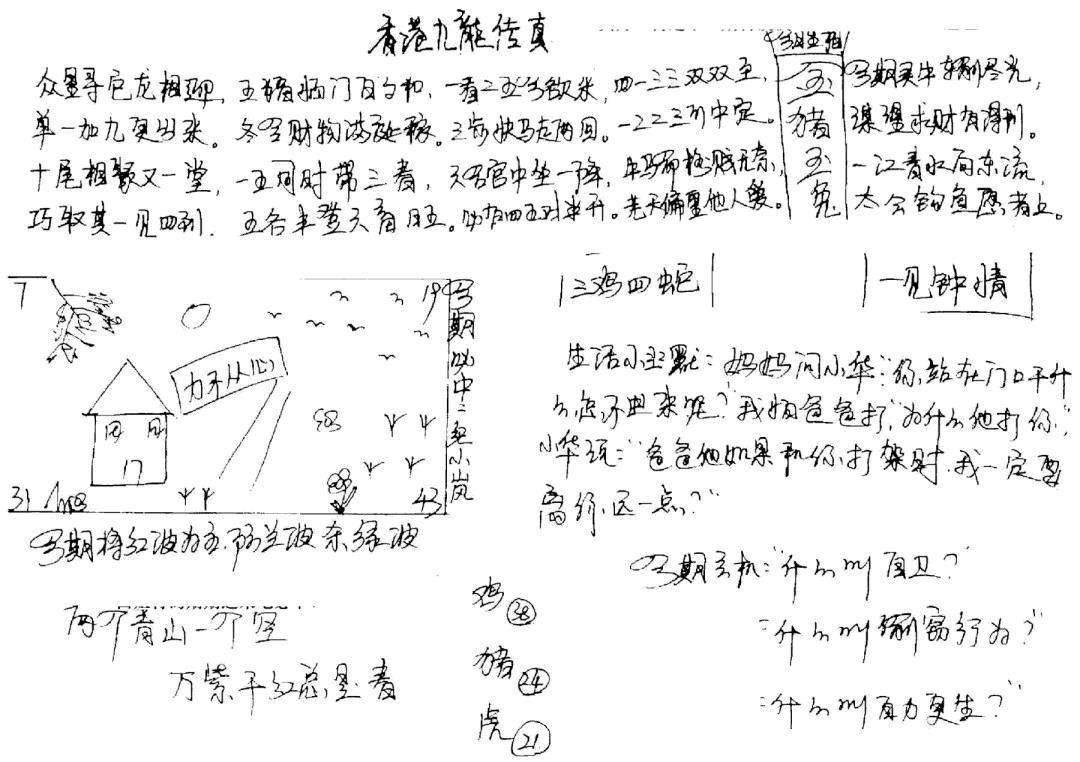 香港九龍传真
众星寻包龙相迎,五猪临门百勺和,一看二五今欲来,四一三三双双至,
单一加九更出来。冬令财物满庭稼。三步快马走两回。一22三可中定。
十尾相聚又一堂,一五同时带三看,天官中坐一阵,
巧取其一见四到.五谷丰登天看日五。必有四五对半开。先天偏星他人爱。
五
猪
玉
兔
今期买牛 尽光,
谋望求财有得利。
一江春水向东流,
太公钓鱼愿者上。
7
19
力不从心
17
31
43
今期必中二组小岚
三鸡四蛇
一见钟情
生活小幽默:妈妈问小华:“你站在门口干什
么,怎不进来呢?”我怕爸爸打,“为什么他打你,”
小华说:“爸爸他如果和你打架时,我一定要
离你远一点?”
今期将红波为主,防兰波杂绿波
今期玄机:“什么叫自卫?”
:什么叫 窃行为?”
:什么叫自力更生?”
两个青山一个空
万紫千红总是春
鸡 38
猪 24
虎 21